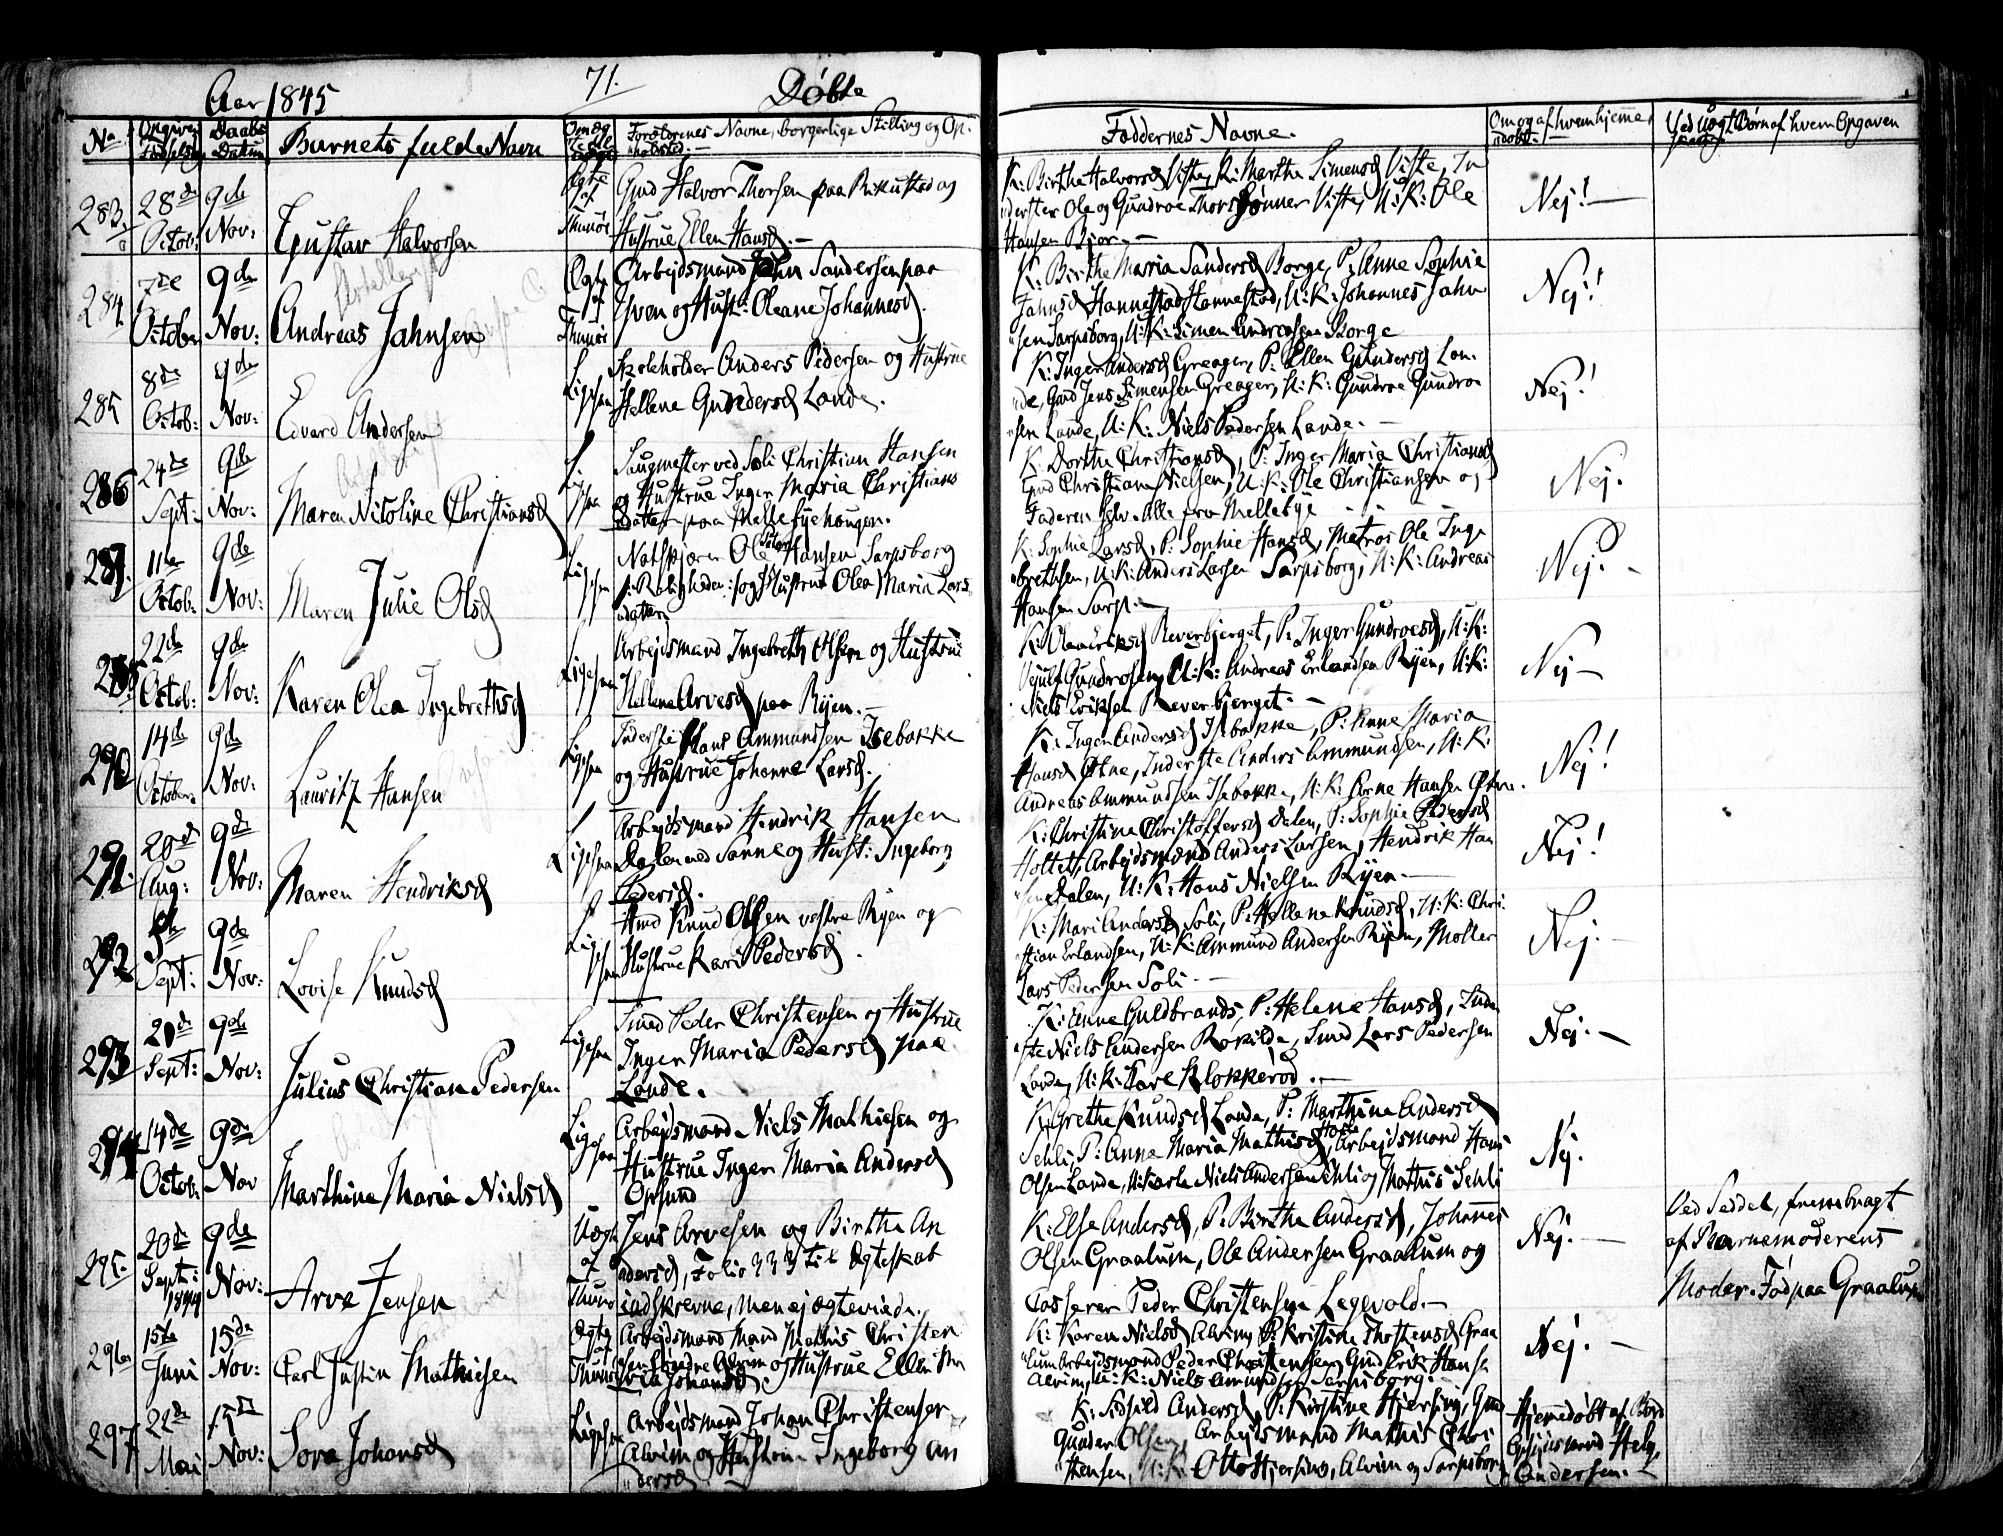 Aar 1845
71.
Døbte
No
Datum
Barnets fulde Navn
Forældrenes Navne, borgerlige Stilling og Op-
holdsted.
Faddernes Navne.
Om og af hvem hjemme-
døbt.
Ved uægt. Børn af hvem Opgaven
283.
28de
Octob:
9de
Nov:
Gustav Halvorsen
Ægte
Gmd Halvor Thorsen paa
og
Hustrue Ellen Hansd.
K: Birthe Halvorsd Viste, P: Marthe Simensd Viste, In
derster Ole og Gundroe Thorssønner Viste, U: K: Ole
Hansen Bjør
Nej!
284
7de
Octobr
9de
Nov:
Andreas Jahnsen
Ægte
af
Arbejdsmand Jahn Sandersen paa
Yven og Hust: Oleane Johannesd.
K: Birthe Maria Sandersd Borge, P: Anne Sophie
Jahnsd Hannestad, U: K: Johannes Jahn
sen Sarpsborg, U: K: Simen Andreasen Borge
Nej!
285
8de
Octob:
9de
Nov:
Edvard Andersen
Ligesaa
Skoleholder Anders Pedersen og Hustrue
Hellene Gundersd Lande.
K: Inger Andersd Greager, P: Ellen Gundersd Lan-
de, Gmd Jens Simensen Greager, U: K: Gundroe Gundro
sen Lande, U: K: Niels Pedersen Lande.
Nej!
286
24de
Sept:
9de
Nov:
Maren Nicoline Christiansd
Saugmester ved Soli Christian Hansen
og Hustrue Inger Maria Christians
datter paa Mellebyehaugen.
K: Dorthe Christiansd, P: Inger Maria Christiansd
Gmd Christian Nielsen, U: K: Ole Christiansen og
Faderen selv. Alle fra Mellebye
Nej.
287.
11te
Octob:
9de
Nov:
Maren Julie Olsd
Ligesaa
Ole Hansen Sarpsborg
og Hustrue Olea Maria Lars
datter
K: Sophie Larsd, P: Sophie Hansd, Matros Ole Inge
brethsen, U: K: Anders Larsen Sarpsborg, U: K: Andreas
Hansen Sarp.
Nej.
22de
Octob:
9de
Nov:
Karen Olea Ingebrethsd
Ligesaa
Arbejdsmand Ingebreth Olsen og Hustrue
Hellene Arvesd paa Ryen.
K: Olea Eriksd Reverbjerget, P: Inger Gundroesd, U: K:
Gundrosen, U: K: Andreas Erlandsen Ryen, U: K:
Niels Eriksen Reverbjerget.
Nej
290
14de
October:
9de
Nov:
Lauritz Hansen
Ligesaa
Inderste Hans Ammundsen Isebakke
og Hustrue Johanne Larsd.
K: Inger Andersd Isebakke, P: Anne Maria
Hansd Østne, Inderste Anders Ammundsen, U: K:
Andreas Ammundsen Isebakke, U: K: Arne Hansen Østne.
Nej!
291.
20de
Aug:
9de
Nov:
Maren Hendriksd
Ligesaa
Arbejdsmand Hendrik Hansen
Dalen ved Sanne og Hust: Ingeborg
Pedersd.
K: Christine Christoffersd Dalen, P: Sophie Pedersd
Holtet, Arbejdsmand Anders Larsen, Hendrik Han
sen Dalen, U: K: Hans Nielsen Ryen.
Nej!
292
Sept:
9de
Nov:
Lovise Knudsd
Ligesaa
Gmd Knud Olsen vestre Ryen og
Hustrue Kari Pedersd.
K: Mari Andersd Soli, P: Hellene Knudsd, U: K: Chri-
stian Erlandsen, U: K: Ammund Andersen Ryen, Møller
Lars Pedersen Soli.
Nej.
293
20de
Sept:
9de
Nov:
Julius Christian Pedersen
Ligesaa
Smed Peder Christensen og Hustrue
Inger Maria Pedersd paa
Lande.
K: Anne Guldbrands, P: Helene Hansd, Inder
ste Niels Andersen Rokilde, Smed Lars Pedersen
Lande, U: K: Tarel Klokkerød.
Nej.
294
14de
Octob:
9de
Nov
Marthine Maria Nielsd
Ligesaa
Arbejdsmand Niels Mathiesen og
Hustrue Inger Maria Andersd
Opsund
K: Grethe Knudsd Lande, P: Marthine Andersd
Sehli, P: Anna Maria Mathisd, Arbejdsmand Hans
Olsen Lande, Niels Andersen Sehli og Mathis Sehli
Nej.
295.
20de
Sept:
1844
9de
Nov:
Arve Jensen
Uægte
af
Jens Arvesen og Birthe An
dersd, Folio 333 til Ægteskab
indskrevne, men ej ægteviede.
K: Else Andersd, P: Birthe Andersd, Johannes
Olsen Graalum, Ole Andersen Graalum og
Casserer Peder Christensen Legevold.
Nej.
Ved Seddel, frembragt
af Barnemoderens
Moder. Fød paa Graalum
296
15de
Juni
15de
Nov:
Carl Justin Mathisen
Ægte
af
Arbejdsmand Mathis Christen
sen Søndre Alvim og Hustrue Ellen Ma
ria Johansd.
K: Karen Nielsd Alvim, P: Kristine Thostensd Graa
lum Arbejdsmand Peder Christensen, Gmd Erik Hansen
Alvim, U: K: Niels Amundsen Sarpsborg.
Nej.
297
22de
Mai
15de
Nov:
Sora Johansd
Ligesaa
Arbejdsmand Johan Christensen
Alvim og Hustrue Ingeborg An
dersd
K: Sidsild Andersd, P: Kirstine Hjersing, Gmd
Gunder Olsen, Arbejdsmand Mathis Chri
stensen, U: K: Otto Hjersing, Alvim og Sarpsborg
Hjemedøbt af
Helge
Andersen.